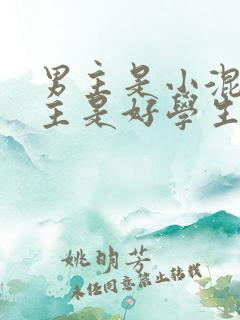 男主是小混
主是好學生
姚明芳
未经同意禁止转载